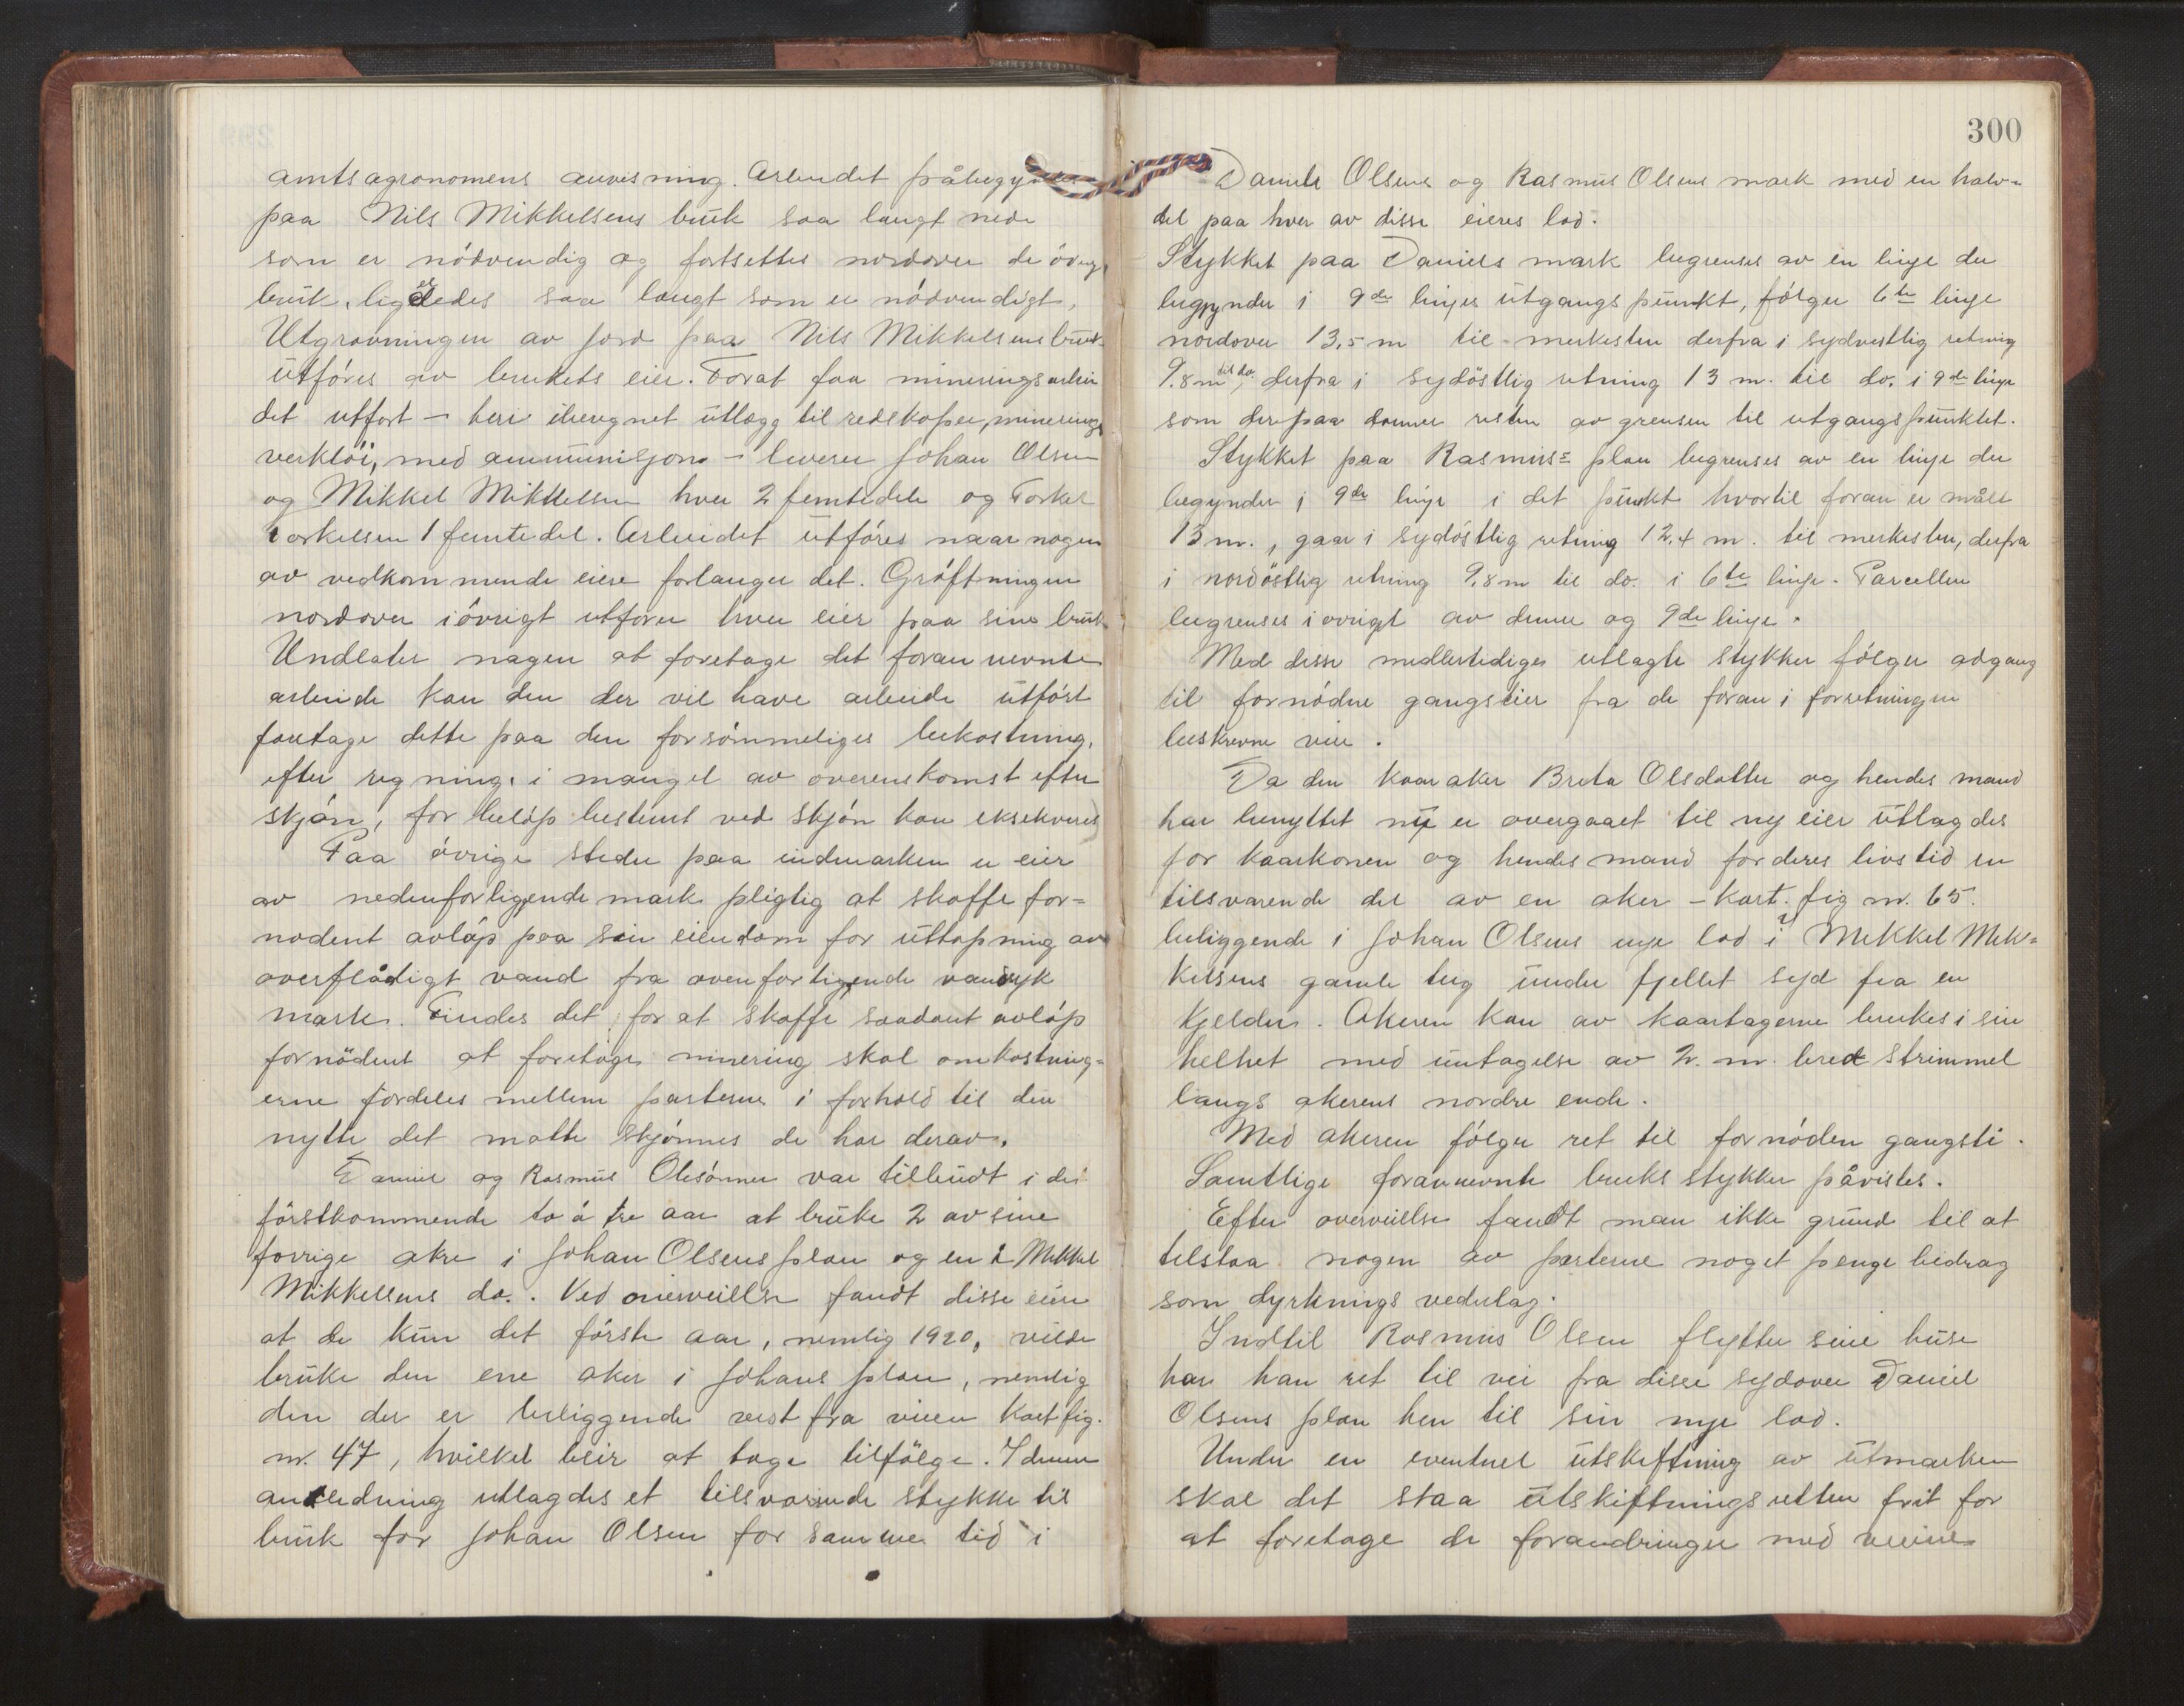 amtsagronomens anvisning. Arbeidet påbegyndes
paa Nils Mikkelsens bruk saa langt nede
som er nødvendig og fortsettes nordover de øvrige
bruk, ligeledes saa langt som er nødvendigt,
Utgravningen av jord paa Nils Mikkelsens bruk
utføres av brukets eier. Forat faa mineringsarbei
det utført – heri iberegnet utlægg til redskaper, minerings
verktøi, med ammunisjon – leverer Johan Olsen
og Mikkel Mikkelsen hver 2 femtedele og Torkel
Torkelsen 1 femtedel. Arbeidet utføres naar nogen
av vedkommende eiere forlanger det. Grøftningen
nordover iøvrigt utfører hver eier paa sine bruk.
Undlater nogen at foretage det foran nevnte
arbeide kan den der vil have arbeide utført
foretage dette paa den forsømmeliges bekostning,
efter regning, i mangel av overenskomst efter
skjøn, for beløp bestemt ved skjøn kan eksekveres
Paa øvrige steder paa indmarken er eier
av nedenforliggende mark pligtig at skaffe for=
nødent avløp paa sin eiendom for uttapning av
overflødigt vand fra ovenforliggende vandsyk
mark. Findes det for at skaffe saadant avløp
fornødent at foretage minering skal omkostning=
erne fordeles mellem parterne i forhold til den
nytte det maatte skjønnes de har derav.
Daniel og Rasmus Olesønner var tilbudt i de
førstkommende to á tre aar at bruke 2 av sine
forrige akre i Johan Olsens plan og en i Mikkel
Mikkelsens do.. Ved overveielse fandt disse eiere
at de kun det første aar, nemlig 1920, vilde
bruke den ene aker i Johans plan, nemlig
den der er beliggende vest fra veien kart fig.
nr. 47, hvilket blir at tage tilfølge. I denne
anledning utlagdes et tilsvarende stykke til
bruk for Johan Olsen for samme tid i
300
Daniels Olsens og Rasmus Olsens mark med en halv=
del paa hver av disse eieres lod.
Stykket paa Daniels mark begrenses av en linje der
begynder i 9de linjes utgangspunkt, følger 6te linje
nordover 13,5 m til merkesten derfra i sydvestlig retning
9.8 m til do., derfra i sydøstlig retning 13 m. til do. i 9de linje
som derpaa danner resten av grensen til utgangspunktet.
Stykket paa Rasmus's plan begrenses av en linje der
begynder i 9de linje i det punkt hvortil foran er målt
13 m., gaar i sydøstlig retning 12,4 m. til merkesten, derfra
i nordøstlig retning 9,8 m til do. i 6te linje. Parcellen
begrenses iøvrigt av denne og 9de linje.
Med disse midlertidiges utlagte stykker følger adgang
til fornødne gangstier fra de foran i forretningen
beskrevne veie.
Da den kaaraker Breta Olsdatter og hendes mand
har benyttet nu er overgaaet til ny eier utlagdes
for kaarkonen og hendes mand for deres livstid en
tilsvarende del av en aker – kart. fig nr. 65.
beliggende i Johan Olsens nye lod i Mikkel Mik=
kelsens gamle teig under fjellet syd fra en
kjelder. Akeren kan av kaartagerne brukes i sin
helhet med undtagelse av 2. m. bred strimmel
langs akerens nordre ende.
Med akeren følger ret til fornøden gangsti.
Samtlige forannevnte bruksstykker påvistes.
Efter overveielse fandt man ikke grund til at
tilstaa nogen av parterne noget pengebidrag
som dyrkningsvederlag.
Indtil Rasmus Olsen flytter sine huse
har han ret til vei fra disse sydover Daniel
Olsens plan hen til sin nye lod.
Under en eventuel utskiftning av utmarken
skal det staa utskiftningsretten frit for
at foretage de forandringer med veiene